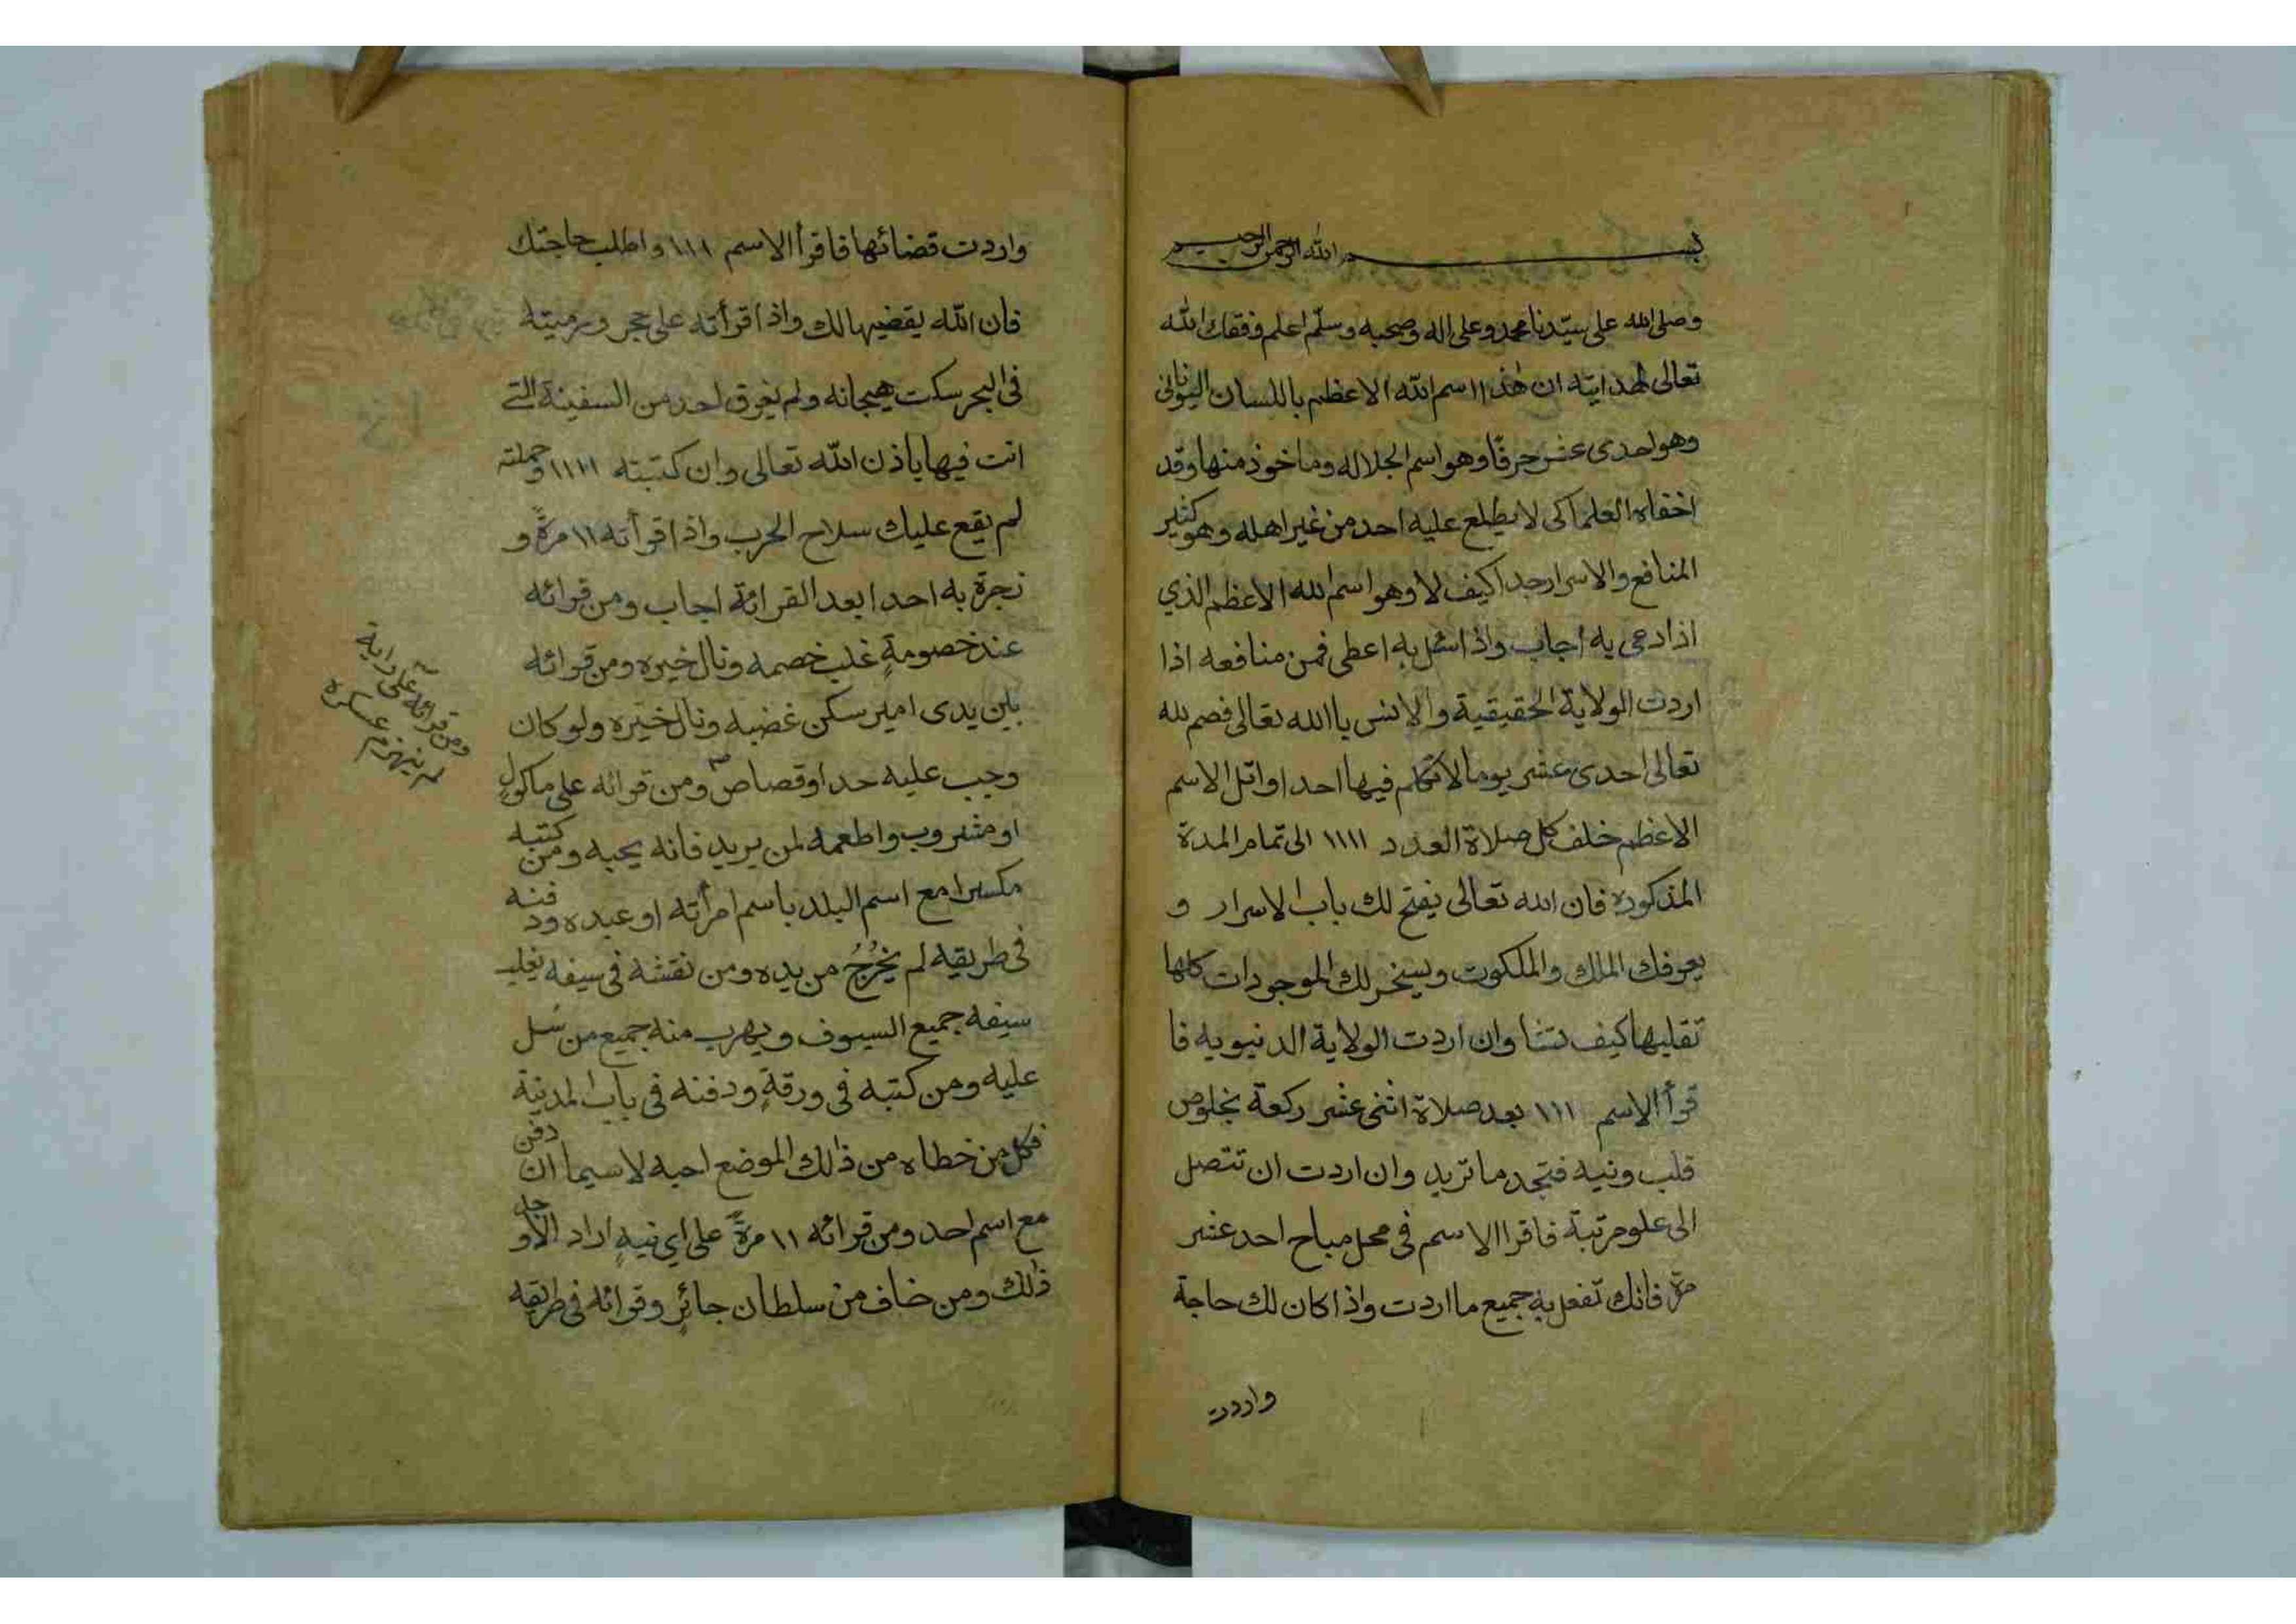 بسم الله الرحمن الرحيم
وصلى الله على سيّدنا محمد وعلى اله وصحبه وسلّم اعلم وفقك الله
تعالى لهدايته ان هٰذا اسم الله الاعظم باللسان اليونانى
وهو احدى عشر حرفًا وهو اسم الجلاله وماخوذ منها وقد
اخفاه العلما كى لا يطلع عليه احد من غير اهله وهو كثير
المنافع والاسرار جدا كيف لا وهو اسم الله الاعظم الذي
اذا دعى به اجاب واذا سئل به اعطى فمن منافعه اذا
اردت الولاية الحقيقية والانس باالله تعالى فصم لله
تعالى احدى عشر يوما لا تكلم فيها احدا واتل الاسم
الاعظم خلف كل صلاة العدد ١١١١ الى تمام المدة
المذكوره فان الله تعالى يفتح لك باب الاسرار و
يعرفك الملك والملكوت ويسخر لك الموجودات كلها
تقلبها كيف تشا وان اردت الولاية الدنيويه فا
قرأ الاسم ١١١ بعد صلاة اثنى عشر ركعة بخلوص
قلب ونيه فتجد ما تريد وان اردت ان تتصل
الى علو مرتبة فاقرا الاسم فى محل مباح احد عشر
مرّة فانك تفعل به جميع ما اردت واذا كان لك حاجة
واردت
واردت قضائها فاقرأ الاسم ١١١ واطلب حاجتك
فان الله يقضيها لك واذا قرأته على حجر ورميته
فى البحر سكت هيجانه ولم يغرق احد من السفينة التى
انت فيها باذن الله تعالى وان كتبته ١١١١ وحملته
لم يقع عليك سلاح الحرب واذا قرأته ١١ مرةً و
نجرة به احدا بعد القرائة اجاب ومن قرائه
عند خصومةٍ غلب خصمه ونال خيره ومن قرائه
بين يدى امير سكن غضبه ونال خيره ولو كان
وجب عليه حد او قصاص ومن قرائه على ماكولٍ
او مشروب واطعمه لمن يريد فانه يحبه ومن كتبه
مكسرا مع اسم البلد باسم امرأته او عبده ودفنه
فى طريقه لم يخرُجُ من يده ومن نقشه فى سيفه يغلب
سيفه جميع السيوف ويهرب منه جميع من سَل
عليه ومن كتبه فى ورقةٍ ودفنه فى باب المدينة
فكل من خطاه من ذالك الموضع احبه لاسيما ان دفن
مع اسم احد ومن قرائه ١١ مرةً على اي نيةٍ اراد الاوجل
ذٰلك ومن خاف من سلطان جائرٍ وقرائه فى طريقه
ومن قرائه على راية
لم ينهزم عسكره